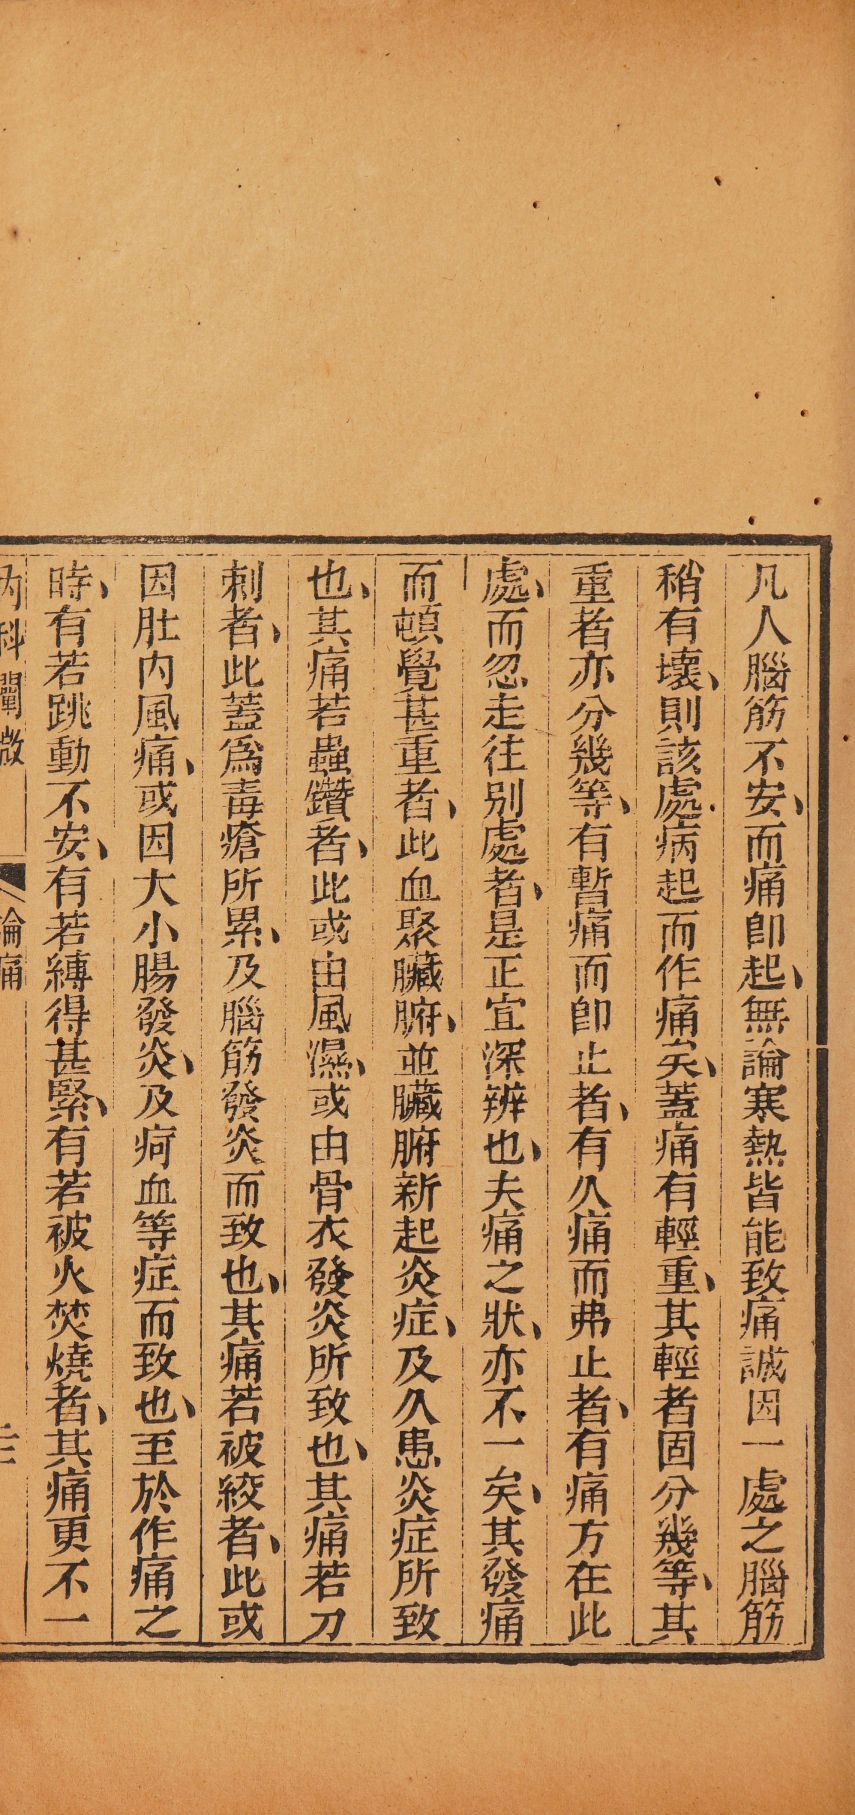 凡人腦筋不安、而痛卽起、無論寒熱皆能致痛誠因一處之腦筋
稍有壞、則該處病起而作痛矣、蓋痛有輕重、其輕者固分幾等、其
重者亦分幾等、有暫痛而卽止者、有久痛而弗止者、有痛方在此
處、而忽走往別處者、是正宜深辨也、夫痛之狀、亦不一矣、其發痛
而頓覺甚重者、此血聚臟腑、並臟腑新起炎症、及久患炎症所致
也、其痛若蟲鑽者、此或由風濕、或由骨衣發炎所致也、其痛若刀
刺者、此蓋爲毒瘡所累、及腦筋發炎而致也、其痛若被絞者、此或
因肚内風痛、或因大小腸發炎、及疴血等症而致也、至於作痛之
時、有若跳動不安、有若縛得甚緊、有若被火焚燒者、其痛更不一
内科闡微 論痛